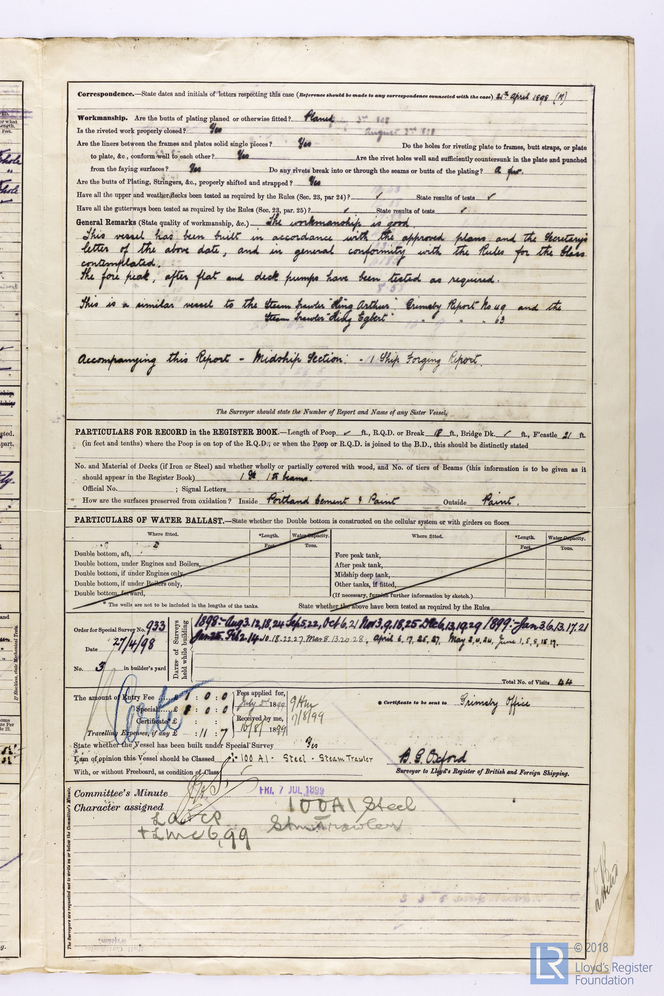 Correspondence.—State dates and initials of letters respecting this case (Reference should be made to any correspondence connected with the case) 21st April 1898 (M)
Workmanship. Are the butts of plating planed or otherwise fitted? Planed
Is the riveted work properly closed? Yes
Are the liners between the frames and plates solid single pieces? Yes Do the holes for riveting plate to frames, butt straps, or plate
to plate, &c., conform well to each other? Yes Are the rivet holes well and sufficiently countersunk in the plate and punched
from the faying surfaces? Yes Do any rivets break into or through the seams or butts of the plating? A few.
Are the butts of Plating, Stringers, &c., properly shifted and strapped? Yes
Have all the upper and weather decks been tested as required by the Rules (Sec. 23, par 24)? ✓ State results of tests ✓
Have all the gutterways been tested as required by the Rules (Sec. 23, par. 25)? ✓ State results of tests ✓
General Remarks (State quality of workmanship, &c.) The workmanship is good
This vessel has been built in accordance with the approved plans and the Secretary's
letter of the above date, and in general conformity with the Rules for the Class
contemplated.
The fore peak, after flat and deck pumps have been tested as required.
This is a similar vessel to the Steam Trawler "King Arthur" Grimsby Report No 49 and the
Steam Trawler "King Egbert" " " " 63
Accompanying this Report – Midship Section. – 1 Ship Forging Report.
The Surveyor should state the Number of Report and Name of any Sister Vessel.
PARTICULARS FOR RECORD in the REGISTER BOOK.—Length of Poop ✓ ft., R.Q.D. or Break ft., Bridge Dk. ✓ ft., F'castle 21 ft.
(in feet and tenths) where the Poop is on top of the R.Q.D.; or when the Poop or R.Q.D. is joined to the B.D., this should be distinctly stated
No. and Material of Decks (if Iron or Steel) and whether wholly or partially covered with wood, and No. of tiers of Beams (this information is to be given as it
should appear in the Register Book) 1 Dk 1 tr beams.
Official No. ; Signal Letters
How are the surfaces preserved from oxidation? Inside Portland Cement & Paint Outside Paint.
PARTICULARS OF WATER BALLAST.—State whether the Double bottom is constructed on the cellular system or with girders on floors
Where fitted. *Length. Water Capacity. Where fitted. *Length. Water Capacity.
Feet. Tons. Feet. Tons.
Double bottom, aft, Fore peak tank,
Double bottom, under Engines and Boilers, After peak tank,
Double bottom, if under Engines only, Midship deep tank,
Double bottom, if under Boilers only, Other tanks, if fitted,
Double bottom, forward, (If necessary, furnish further information by sketch.)
* The wells are not to be included in the lengths of the tanks. State whether the above have been tested as required by the Rules
Order for Special Survey No. 933
Date 27/4/98
No. 3 in builder's yard
DATES of Surveys held while building
1898:- Aug 3, 12, 18, 24 Sep 5, 22, Oct 6, 21 Nov 3, 9, 18, 25 Dec 6, 13, 19, 29 1899:- Jan 3, 6, 13, 17, 21
Jan 25 Feb 2, 14, 10, 18, 22, 27 Mar 8, 13, 20, 28, April 6, 17, 25, 27, May 2, 4, 24, June 1, 5, 8, 15, 17.
Total No. of Visits 44
The amount of Entry Fee £ 1 : 0 : 0 Fees applied for,
Special £ : 0 : 0 July 5th 1899
Certificate £ : : Received by me,
Travelling Expenses, if any £ : 11 : 7 10/8/ 1899
7/8/99
* Certificate to be sent to Grimsby Office
State whether the Vessel has been built under Special Survey Yes
I am of opinion this Vessel should be Classed 100 A1 - Steel - Steam Trawler
With, or without Freeboard, as condition of Class
B. G. Oxford
Surveyor to Lloyd's Register of British and Foreign Shipping.
Committee's Minute FRI. 7 JUL 1899
Character assigned 100A1 Steel
Stm Trawler
L a & CP
+ LMC 6,99
The Surveyors are requested not to write on or below the Committee's Minute.
LR
© 2018
Lloyd's Register
Foundation